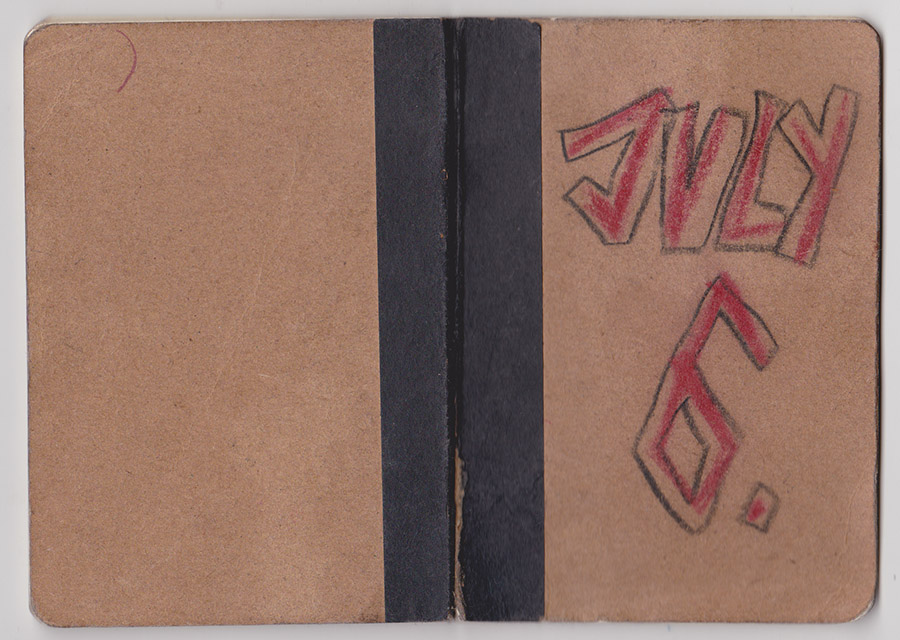 JULY
6.